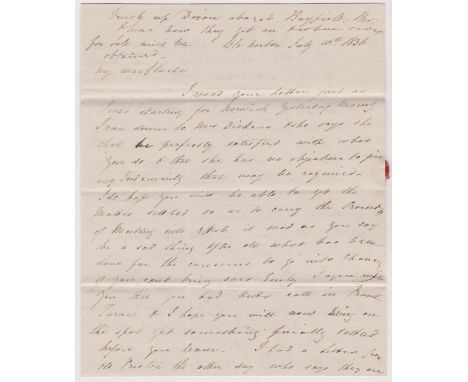 up Dixon about Hayfield
know how they get on
for sale will be Blo Norton July 10th 1836
obtained
My dear Charles
I recd your letter just as
I was starting for Norwich yesterday morning
I ran down to Mrs Dickens who says she
shall be perfectly satisfied with what
you do & that she has no objection to give
any Indemnity that may be required
I do hope you will be able to get the
matter settled so as to carry the Proceeds
of Meeting into effect it wod as you say
be a sad thing after all what has been
done for the concerns to go into Chancy
if you cant bring over Emily I agree with
you that you had better call in
Turner & I hope you will now being on
the spot get something finally settled
before you leave – I had a letter from
Preston the other day who says they are